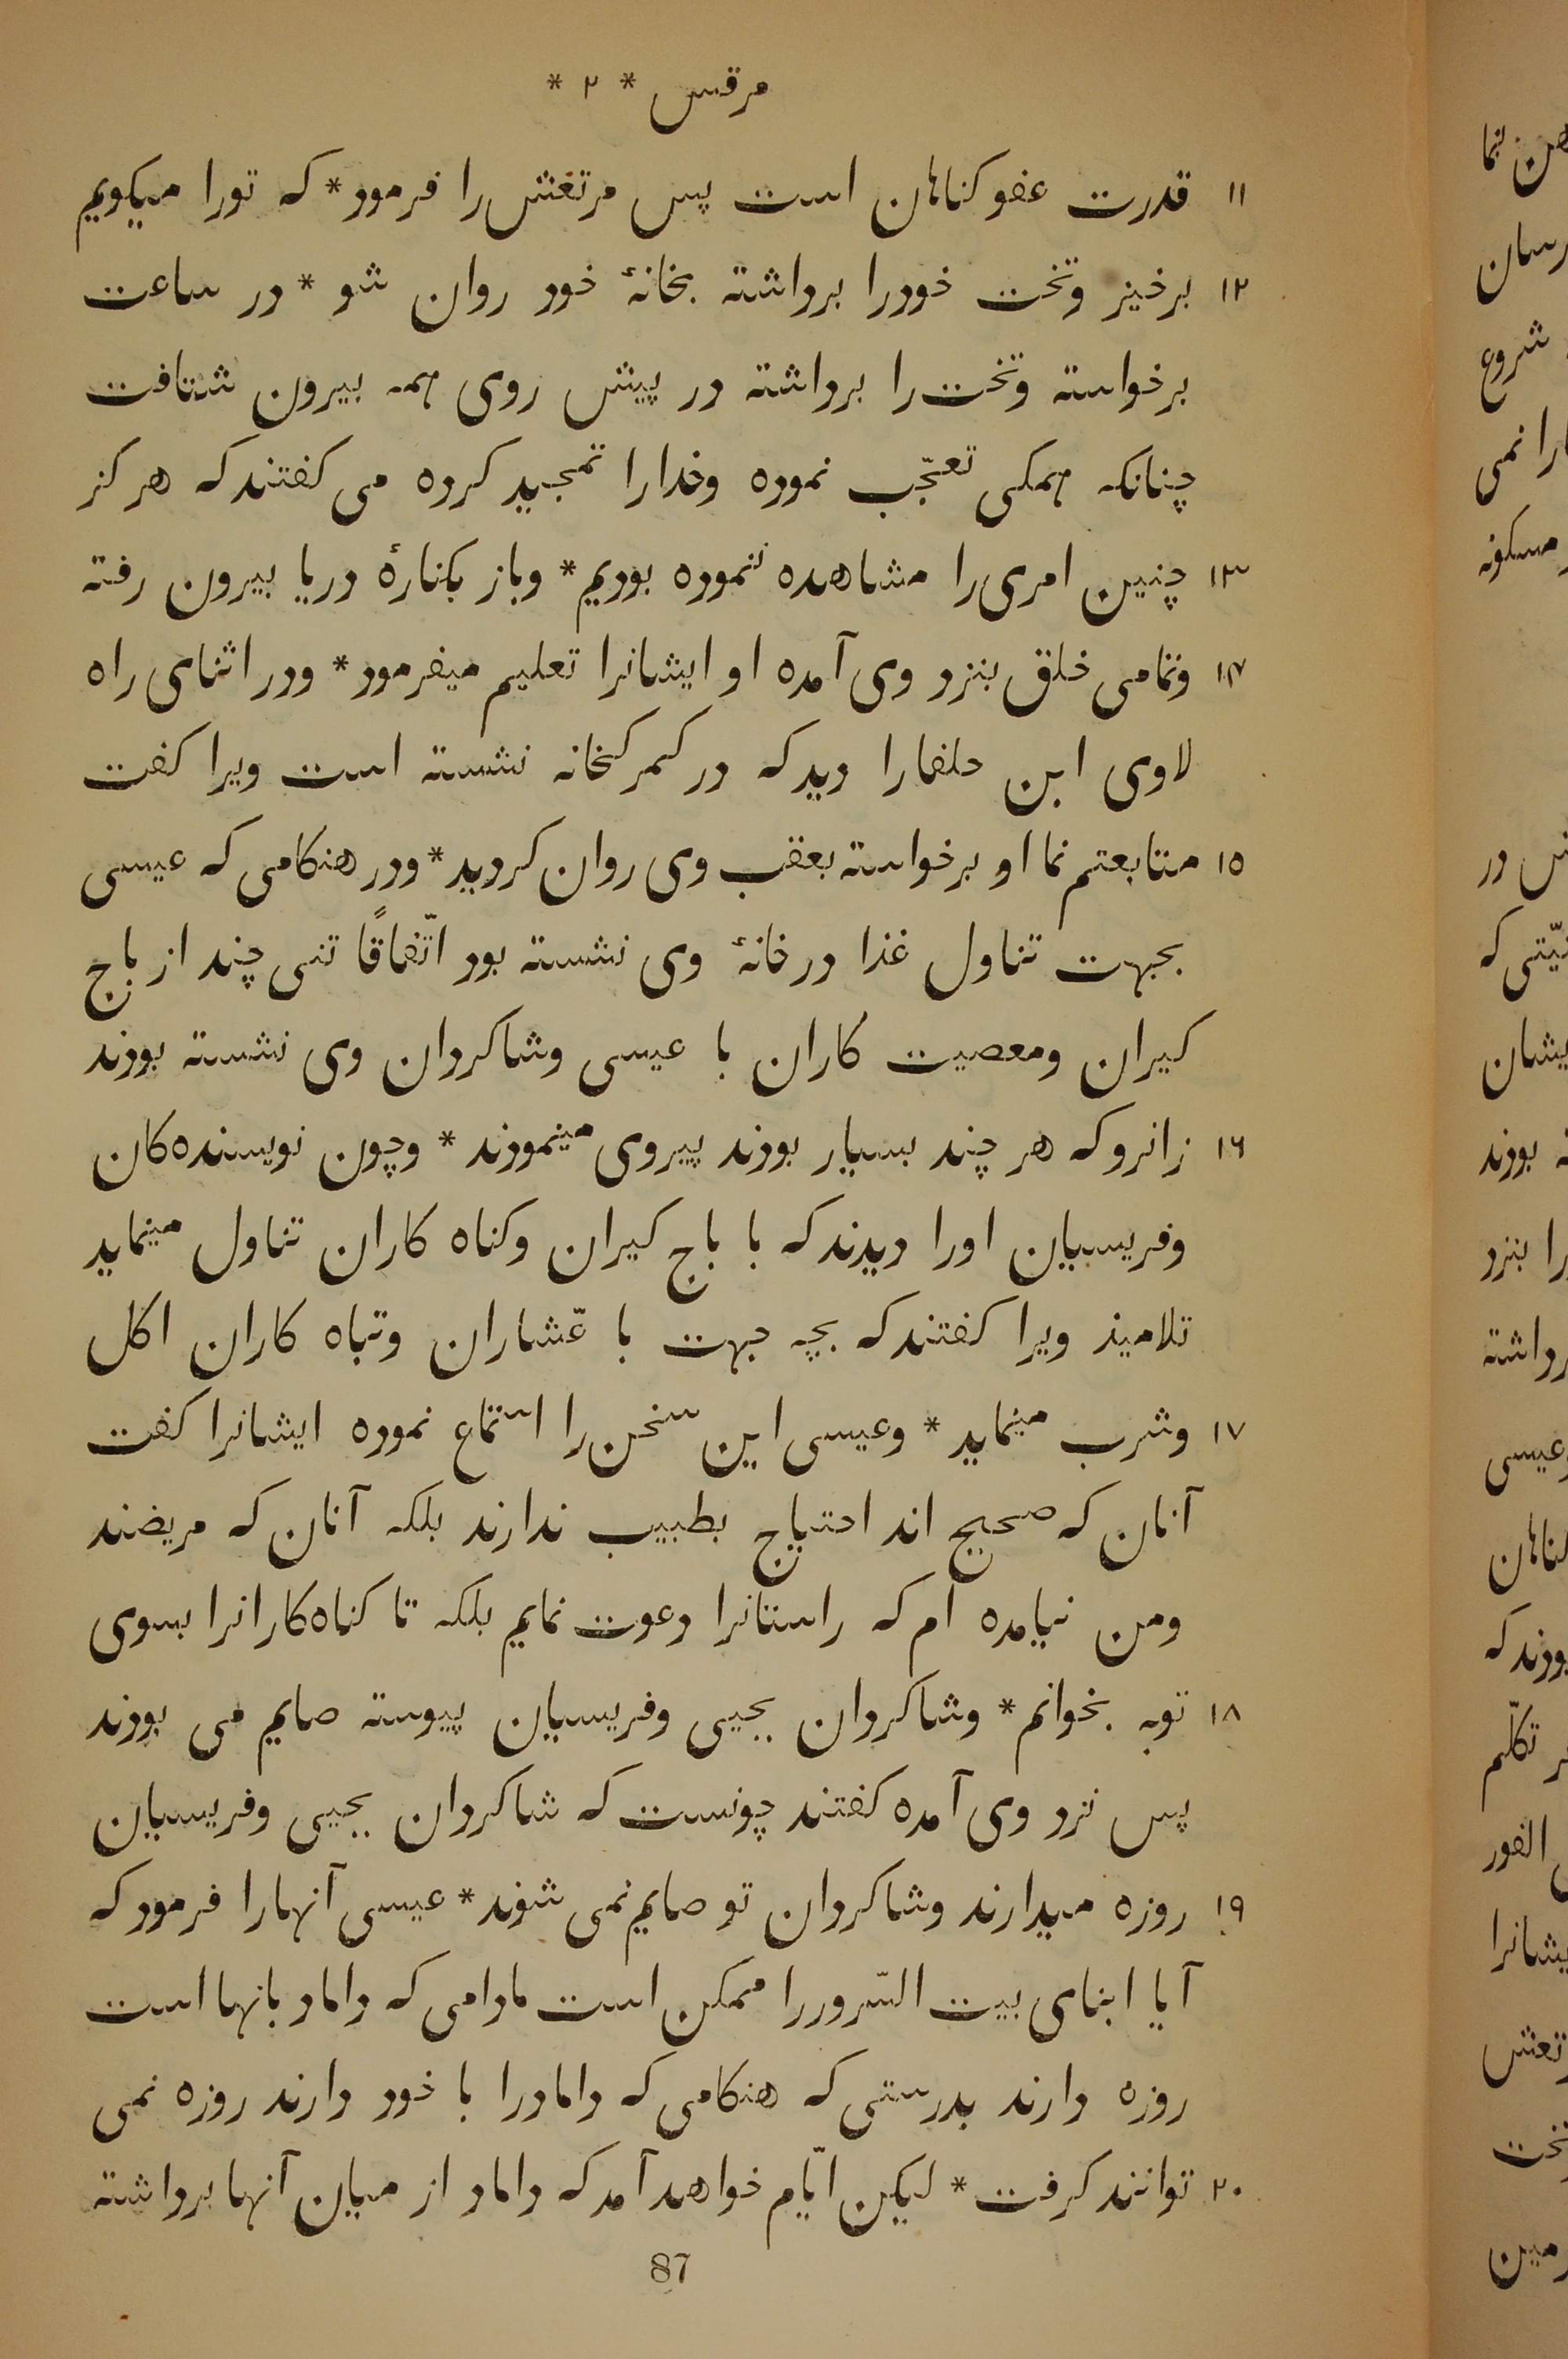 مرقس * ٢ *
١١ قدرت عفو كناهان است پس مرتعش را فرمود * كه تورا ميكويم
١٢ برخيز وتخت خودرا برداشته بخانهٔ خود روان شو * در ساعت
برخواسته وتخت را برداشته در پيش روى همه بيرون شتافت
چنانكه همكى تعجّب نموده وخدارا تمجيد كرده مى كفتند كه هر كز
١٣ چنين امرى را مشاهده ننموده بوديم * وباز بكنارهٔ دريا بيرون رفته
١٤ وتمامى خلق بنزد وى آمده او ايشانرا تعليم ميفرمود * ودر اثناى راه
لاوى ابن حلفارا ديد كه در كمركخانه نشسته است ويرا كفت
١٥ متابعتم نما او برخواسته بعقب وى روان كرديد * ودر هنكامى كه عيسى
بجهت تناول غذا در خانهٔ وى نشسته بود اتّفاقًا تنى چند از باج
كيران ومعصيت كاران با عيسى وشاكردان وى نشسته بودند
١٦ زانرو كه هر چند بسيار بودند پيروى مينمودند * وچون نويسنده كان
وفريسيان اورا ديدند كه با باج كيران وكناه كاران تناول مينمايد
تلاميذ ويرا كفتند كه بچه جهت با عّشاران وتباه كاران اكل
١٧ وشرب مينمايد * وعيسى اين سخن را استماع نموده ايشانرا كفت
آنان كه صحيح اند احتياج بطبيب ندارند بلكه آنان كه مريضند
ومن نيامده ام كه راستانرا دعوت نمايم بلكه تا كناه كارانرا بسوى
١٨ توبه بخوانم * وشاكردان يحيى وفريسيان پيوسته صايم مى بودند
پس نزد وى آمده كفتند چونست كه شاكردان يحيى وفريسيان
١٩ روزه ميدارند وشاكردان تو صايم نمى شوند * عيسى آنهارا فرمود كه
آيا ابناى بيت السّروررا ممكن است مادامى كه داماد بانها است
روزه دارند بدرستى كه هنكامى كه دامادرا با خود دارند روزه نمى
٢٠ توانند كرفت * ليكن ايّام خواهد آمد كه داماد از ميان آنها برداشته
87